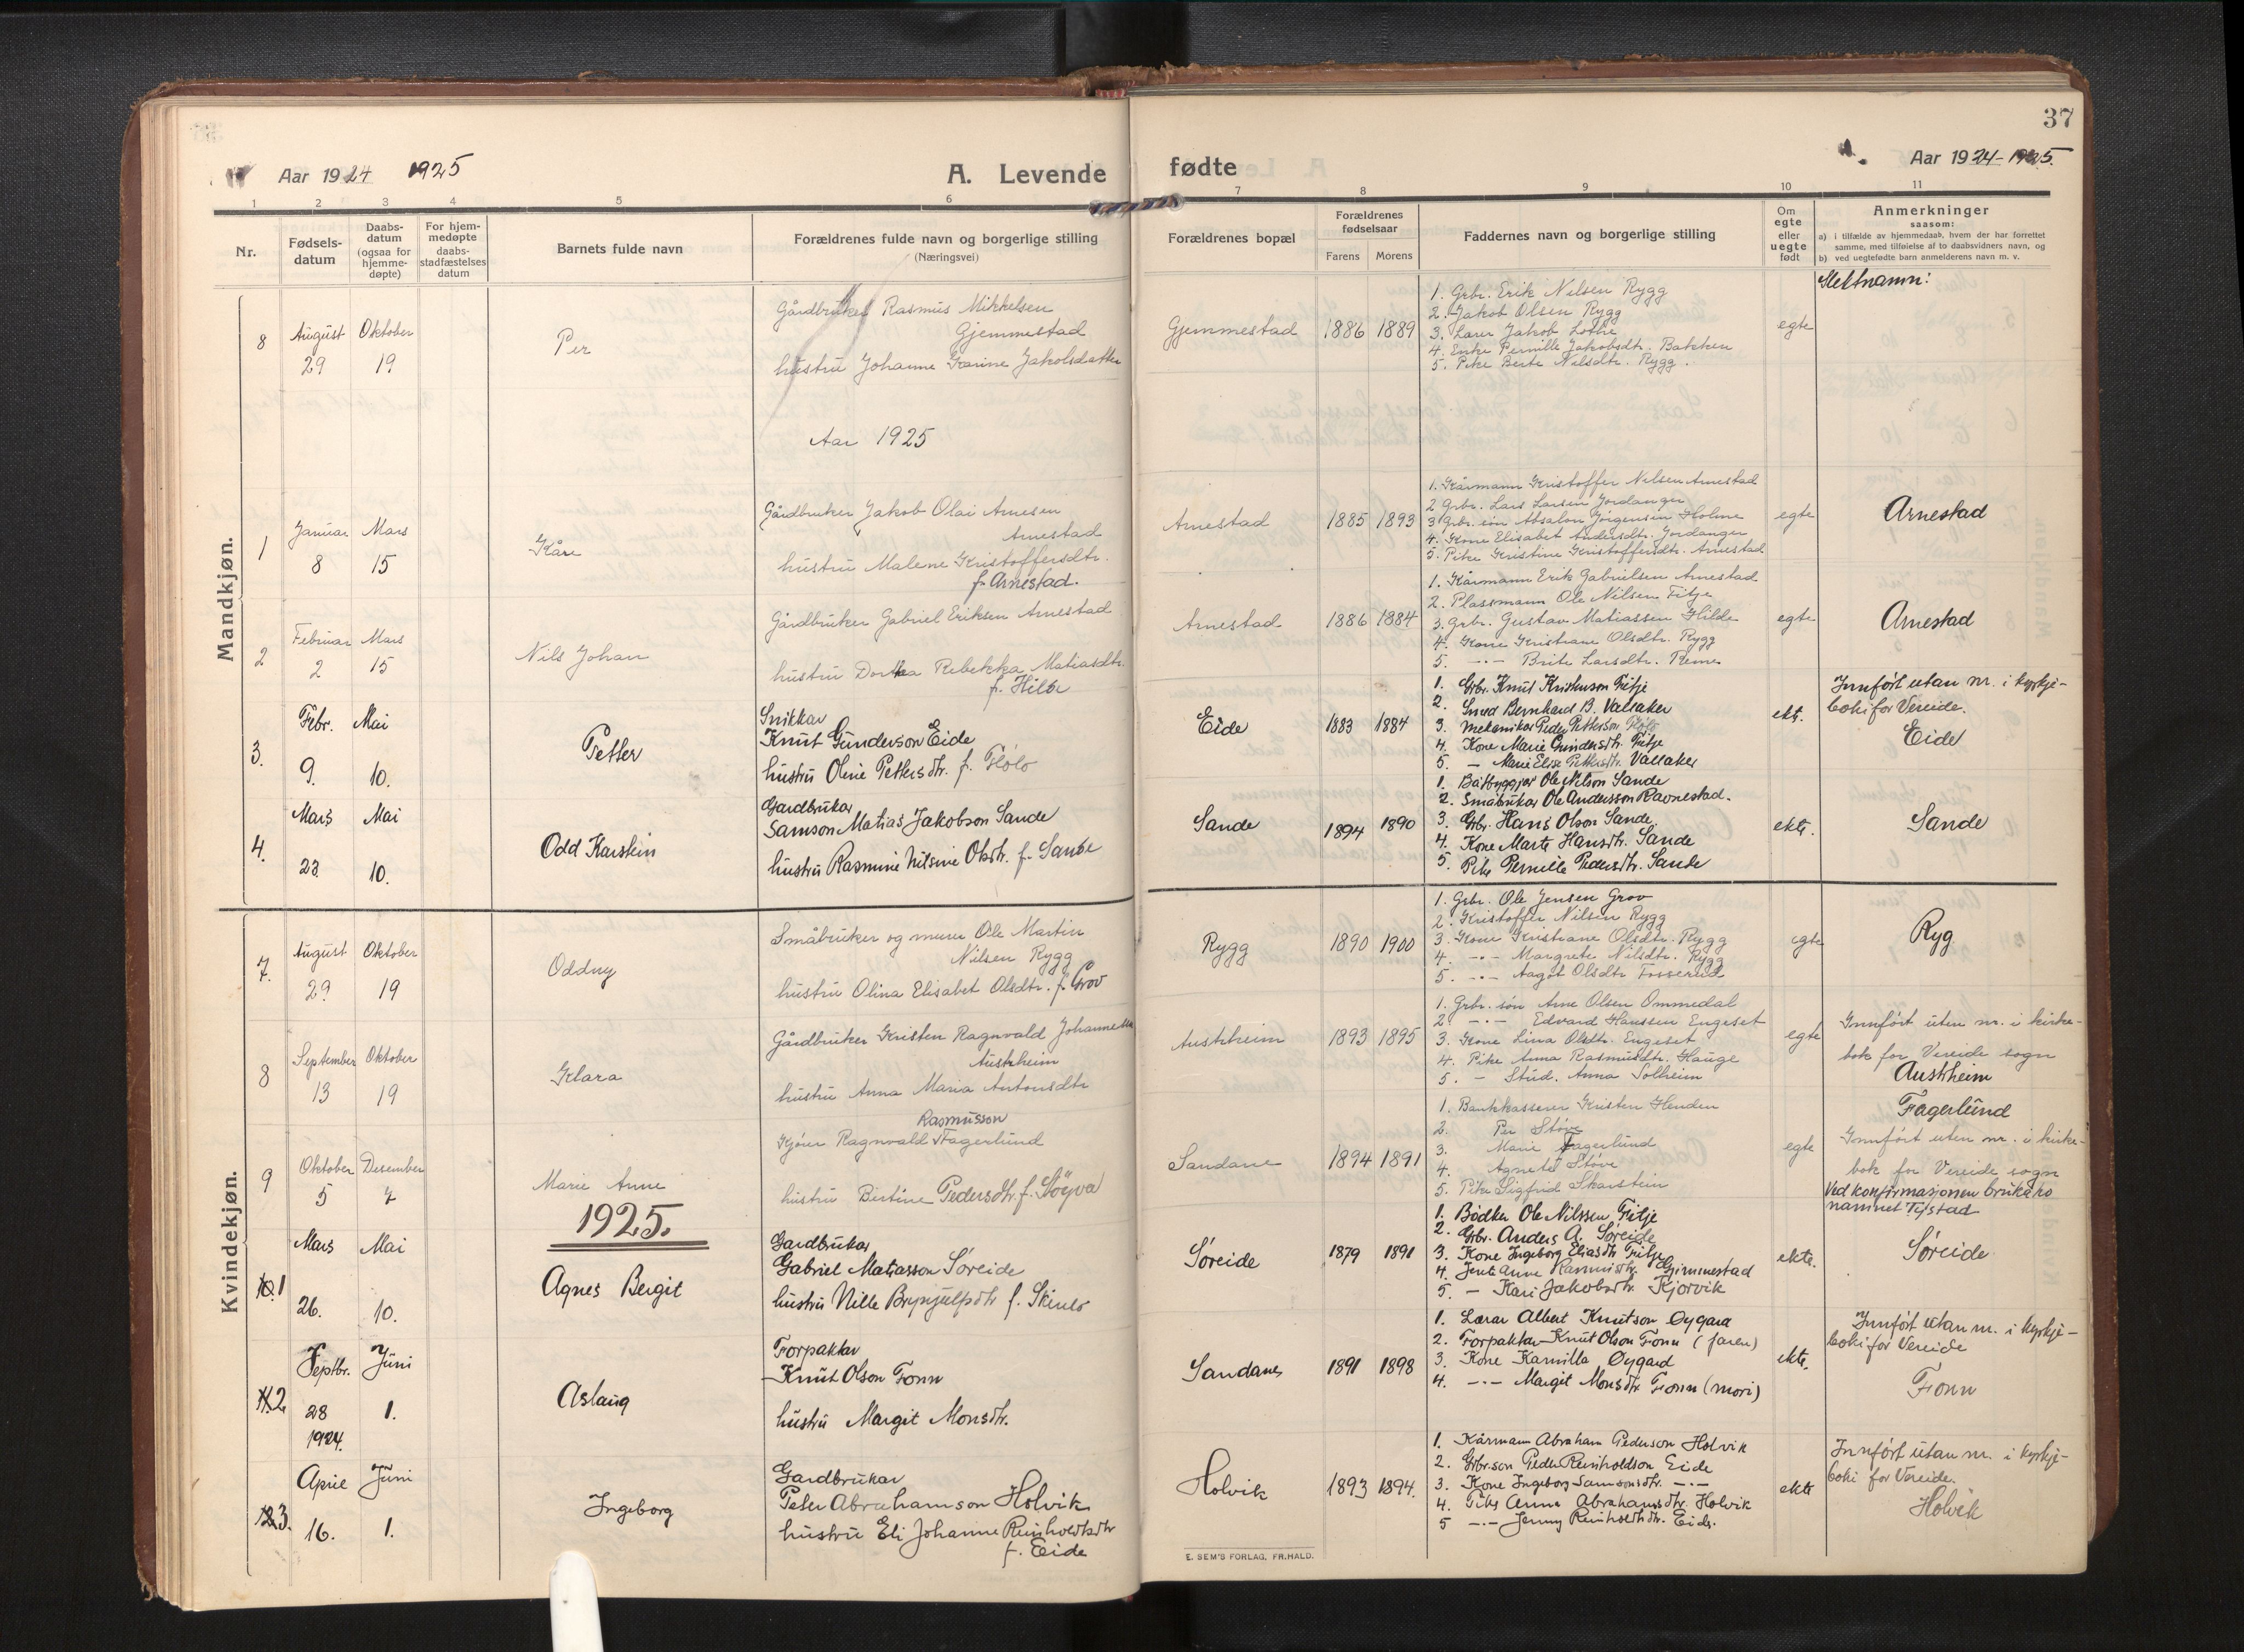 37
Aar 1924 1925
A. Levende fødte
Aar 1924-1925.
1 2 3 4 5 6 7 8 9 10 11
Nr.
Fødsels-
datum
Daabs-
datum
(ogsaa for
hjemme-
døpte)
For hjem-
medøpte
daabs-
stadfæstelses
datum
Barnets fulde navn
Forældrenes fulde navn og borgerlige stilling
(Næringsvei)
Forældrenes bopæl
Forældrenes
fødselsaar
Farens Morens
Faddernes navn og borgerlige stilling
Om
egte
eller
uegte
født
Anmerkninger
saasom:
a) i tilfælde av hjemmedaab, hvem der har forrettet
samme, med tilføielse af to daabsvidners navn, og
b) ved uegtefødte barn anmelderens navn m. v.
Slektnamn:
Mandkjøn.
8
August
29
Oktober
19
Per
Gårdbruker Rasmus Mikkelsen
Gjemmestad
hustru Johanne Karine Jakobsdatter
Gjemmestad
1886 1889
1. Grbr. Erik Nilsen Rygg
2. Jakob Olsen Rygg
3. Lærer Jakob Lothe
4. Enke Pernille Jakobsdtr. Bakken
5. Pike Berte Nilsdtr. Rygg.
egte
Aar 1925
1
Januar
8
Mars
15
Kåre
Gårdbruker Jakob Olai Arnesen
Arnestad
hustru Malene Kristoffersdtr.
f. Arnestad.
Arnestad
1885 1893
1. Kårmann Kristoffer Nilsen Arnestad
2 Grbr. Lars Larsen Jordanger
3 Grbr. søn Absalon Jørgensen Holme
4. Kone Elisabet Andersdtr. Jordanger
5. Pike Kristine Kristoffersdtr. Arnestad
egte
Arnestad
2
Februar
2
Mars
15
Nils Johan
Gårdbruker Gabriel Eriksen Arnestad
hustru Dorthea Rebekka Matiasdtr.
f. Hilde
Arnestad
1886 1884
1. Kårmann Erik Gabrielsen Arnestad
2. Plassmann Ole Nilsen Fitje
3. Grbr. Gustav Matiassen Hilde
4. Kone Kristiane Olsdtr. Rygg
5. -·- Brite Larsdtr. Reme
egte
Arnestad
3.
Febr.
9.
Mai
10.
Petter
Snikkar
Knut Gunderson Eide
hustru Oline Pettersdtr. f. Flølo
Eide
1883 1884
1. Grbr. Knut Kristenson Fitje
2. Smed Bernhard B. Vallaker
3. Mekanikar Peder Petterson Flølo
4. Kone Marie Gundersdtr. Fitje
5. - Marie Elise Pettersdtr. Vallaker
ekt.
Innført utan nr. i kyrkje-
boki for Vereide.
Eide
4.
Mars
23.
Mai
10.
Odd Karstein
Gardbrukar
Samson Matias Jakobson Sande
hustru Rasmine Nilsine Olsdtr. f. Sande
Sande
1894 1890
1. Båtbyggjar Ole Nilson Sande
2. Småbrukar Ole Andersson Ravnestad.
3. Grbr. Hans Olson Sande.
4. Kone Marte Hansdtr. Sande
5. Pike Pernille Pedersdtr. Sande
ekte.
Sande
Kvindekjøn.
7.
August
29
Oktober
19
Oddny
Småbruker og murer Ole Martin
Nilsen Rygg
hustru Olina Elisabet Olsdtr. f. Grov
Rygg
1890 1900
1. Grbr. Ole Jensen Grov
2. Kristoffer Nilsen Rygg
3. Kone Kristiane Olsdtr. Rygg
4. -·- Margrete Nilsdtr. Rygg
5. -·- Aagot Olsdtr Fosserud
egte
Ryg
8
September
13
Oktober
19
Klara
Gårdbruker Kristen Ragnvald Johannessen
Austrheim
hustru Anna Maria Antonsdtr
Austrheim
1893 1895
1. Grbr. søn Arne Olsen Ommedal
2. -·- Edvard Hanssen Engeset
3. Kone Lina Olsdtr. Engeset
4. Pike Anna Rasmusdtr. Hauge
5. - Stud. Anna Solheim
egte
Innført uten nr. i kirke-
bok for Vereide sogn
Austrheim
9
Oktober
5
Desember
7
Marie Anne
Rasmusson
Kjører Ragnvald Fagerlund
hustru Bertine Pedersdtr. f. Støyva
Sandane
1894 1891
1. Bankkasserer Kristen Henden
2. Per Støve
3. Marie Fagerlund
4. Agnete Støve
5. Pike Sigfrid Skarstein
egte
Fagerlund
Innført uten nr. i kirke-
bok for Vereide sogn
Ved konfirmasjonen brukar ho
namnet Tystad
1925.
10. 1
Mars
26.
Mai
10.
Agnes Bergit
Gardbrukar
Gabriel Matiasson Søreide
hustru Nille Brynjulfsdtr f. Skinlo
Søreide
1879 1891
1. Bødker Ole Nilssen Fitje
2. Grbr. Anders A. Søreide
3. Kone Ingeborg Eliasdtr Fitje
4. Jente Anne Rasmusdtr. Gimmestad
5. - Kari Jakobsdtr. Kjorvik
ekte.
Søreide
11. 2
Septbr.
28
1924.
Juni
1.
Aslaug
Forpaktar
Knut Olson Fonn
hustru Margit Monsdtr.
Sandane
1891 1898
1. Lærar Albert Knutson Øygard
2. Forpaktar Knut Olson Fonn (faren)
3. Kone Kamilla Øygard
4. -·- Margit Monsdtr. Fonn (mori)
ekte.
Innført utan nr. i kyrkje-
boki for Vereide
Fonn
12 3.
April
16.
Juni
1.
Ingeborg
Gardbrukar
Peter Abrahamson Holvik
hustru Eli Johanne Reinholdtsdtr
f. Eide
Holvik
1893 1894.
1. Kårmann Abraham Pederson Holvik
2. Grbr.son Peder Reinholdson Eide
3. Kone Ingeborg Samsonsdtr. -·-
4. Pike Anna Abrahamsdtr. Holvik
5 -·- Jenny Reinholdtsdtr. Eide.
ekte
Innført utan nr. i kyrkje-
boki for Vereide.
Holvik
E. SEM'S FORLAG, FR.HALD.